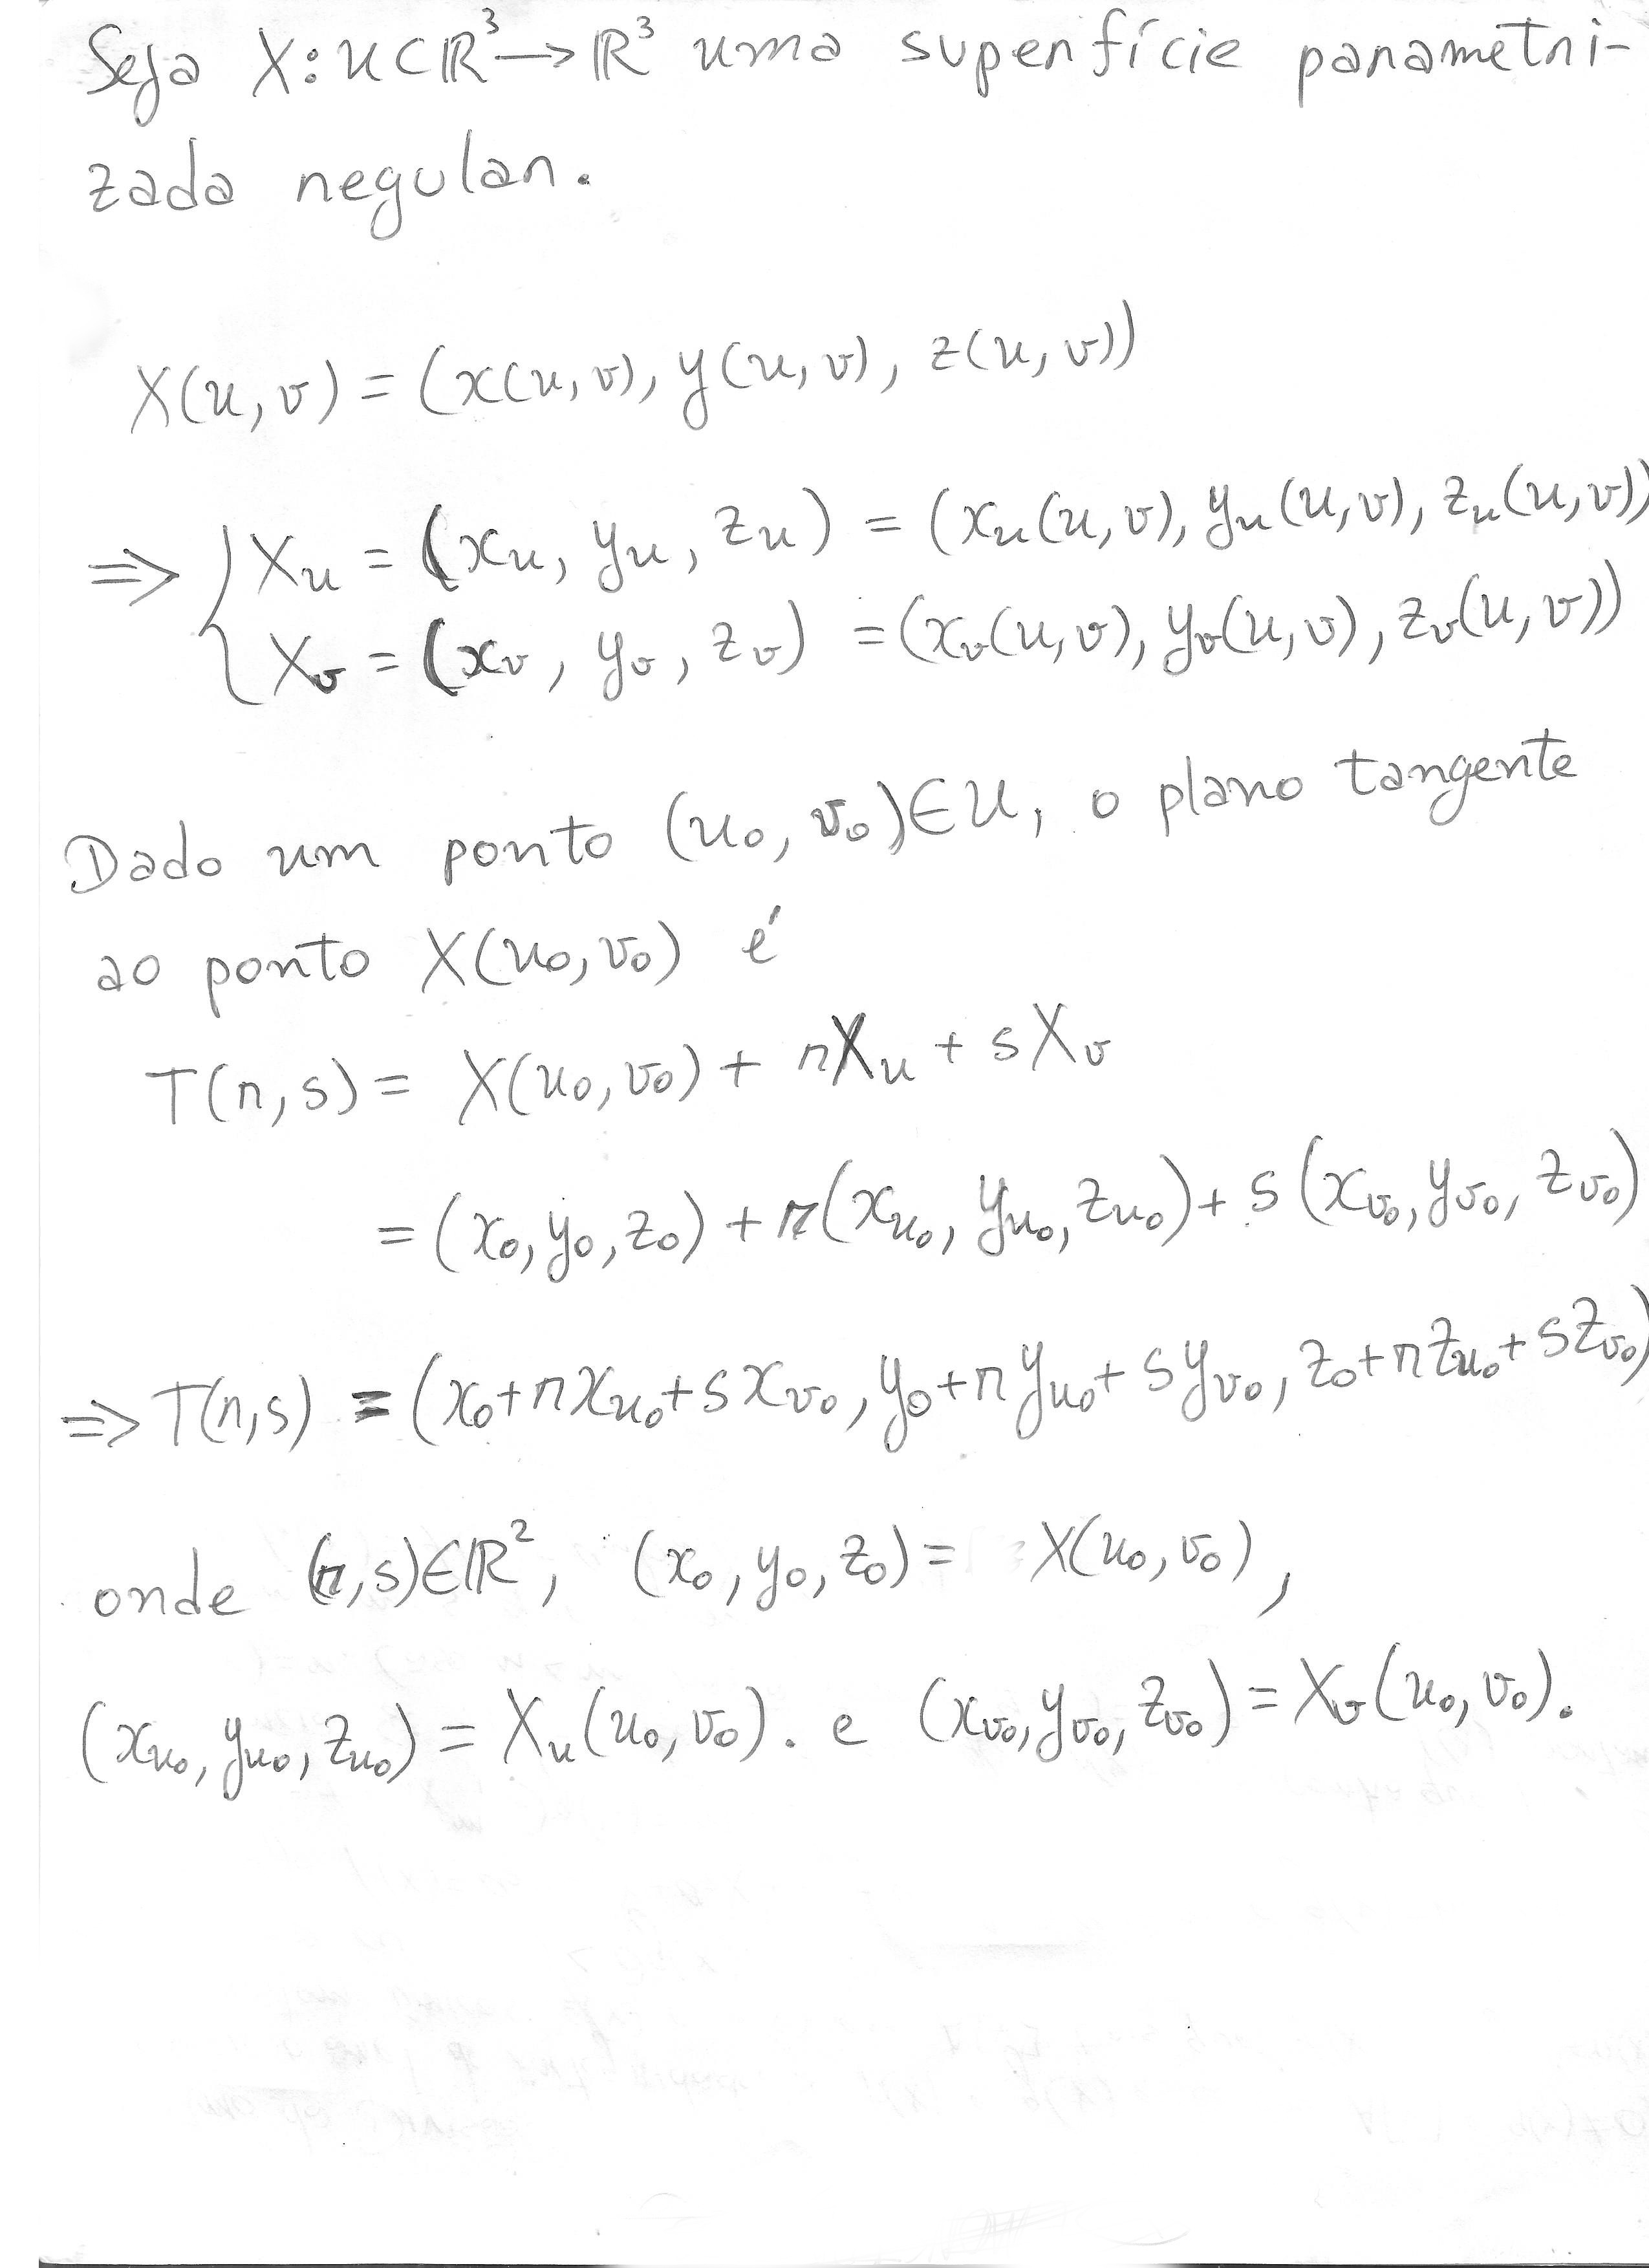 Seja X: U ⊂ ℝ³ → ℝ³ uma superfície parametri-
zada regular.
X(u, v) = (x(u, v), y(u, v), z(u, v))
⇒ { X_u = (x_u, y_u, z_u) = (x_u(u, v), y_u(u, v), z_u(u, v))
X_v = (x_v, y_v, z_v) = (x_v(u, v), y_v(u, v), z_v(u, v))
Dado um ponto (u₀, v₀) ∈ U, o plano tangente
ao ponto X(u₀, v₀) é
T(r, s) = X(u₀, v₀) + rX_u + sX_v
= (x₀, y₀, z₀) + r(x_u₀, y_u₀, z_u₀) + s(x_v₀, y_v₀, z_v₀)
⇒ T(r, s) = (x₀ + rx_u₀ + sx_v₀, y₀ + ry_u₀ + sy_v₀, z₀ + rz_u₀ + sz_v₀)
onde (r, s) ∈ ℝ², (x₀, y₀, z₀) = X(u₀, v₀),
(x_u₀, y_u₀, z_u₀) = X_u(u₀, v₀). e (x_v₀, y_v₀, z_v₀) = X_v(u₀, v₀).